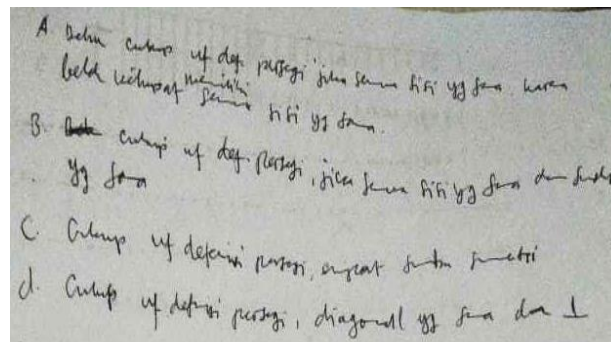 A. Belum cukup utk def. persegi jika semua sisi yg sama karena
belah ketupat memiliki semua sisi yg sama.
B. cukup utk def. persegi, jika semua sisi yg sama dan sudut
yg sama
C. Cukup utk definisi persegi, empat sumbu simetri
d. Cukup utk definisi persegi, diagonal yg sama dan ⊥